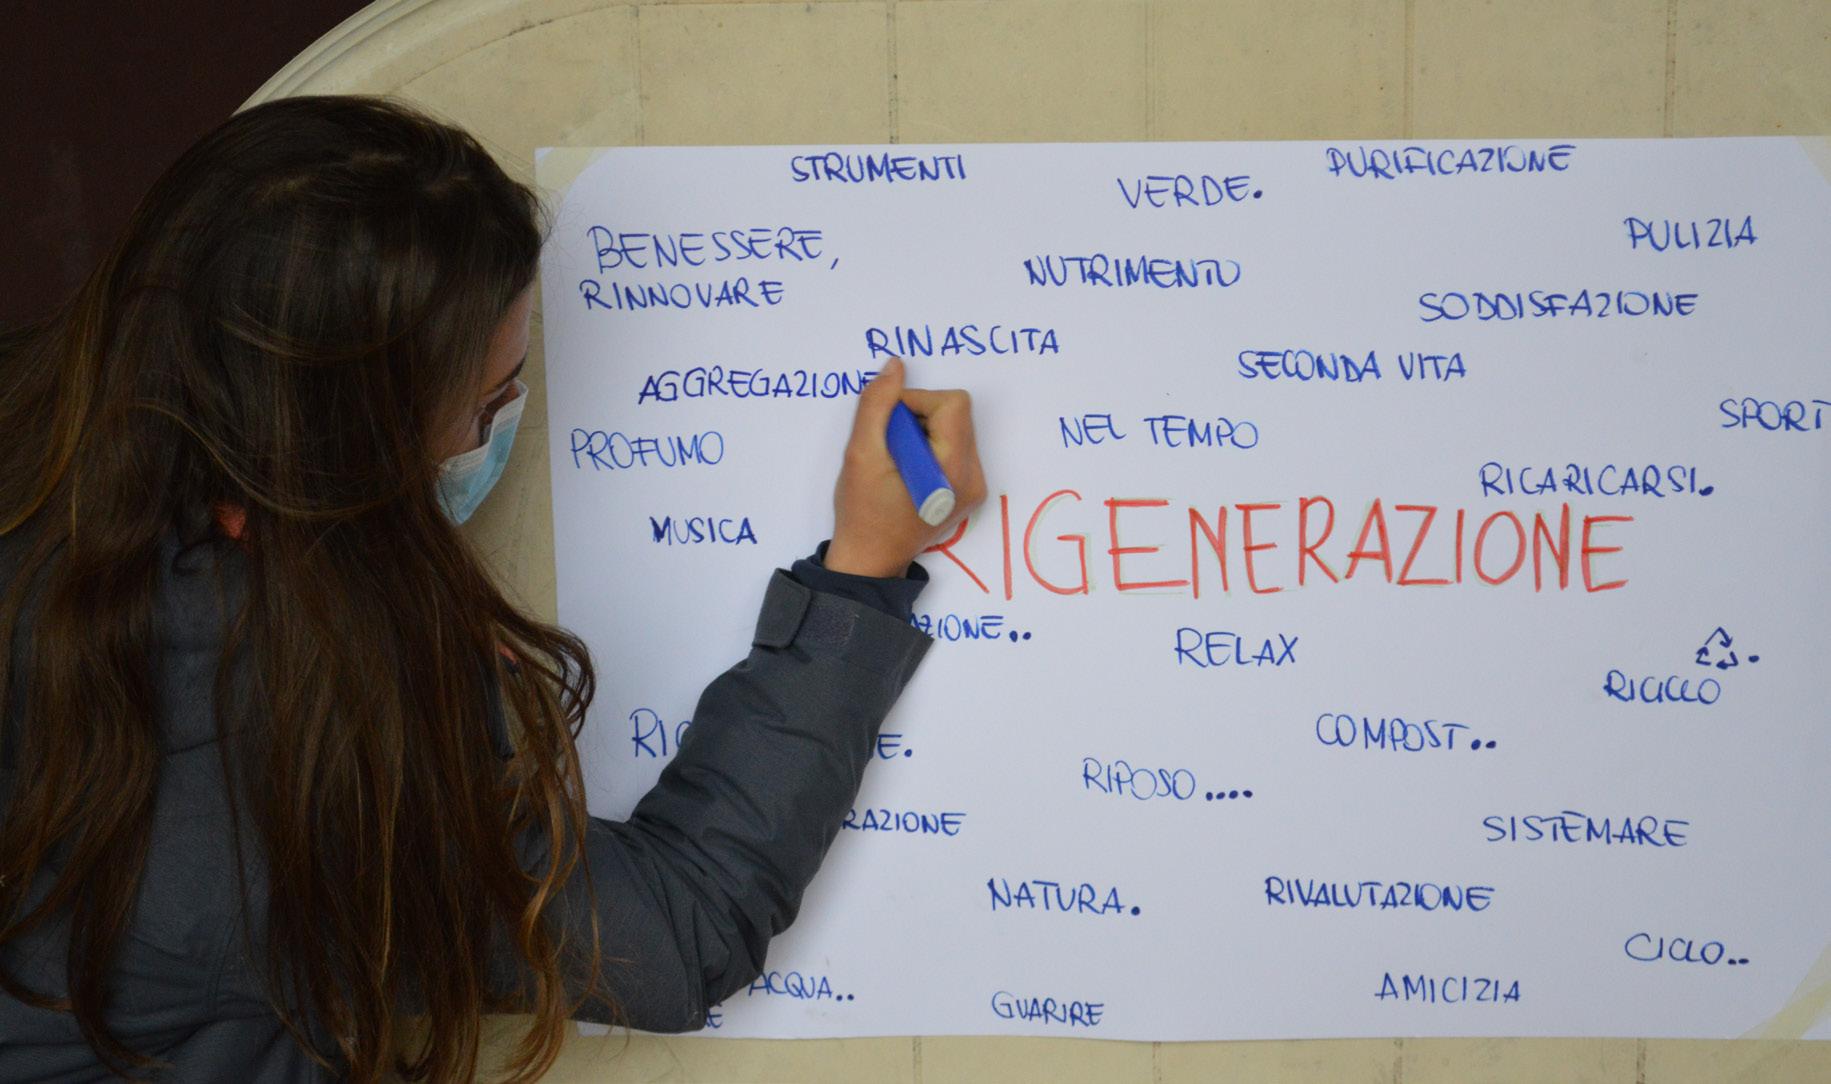 STRUMENTI
VERDE.
PURIFICAZIONE
PULIZIA
BENESSERE,
RINNOVARE
NUTRIMENTO
SODDISFAZIONE
RINASCITA
SECONDA VITA
AGGREGAZIONE
SPORT
NEL TEMPO
PROFUMO
RICARICARSI.
MUSICA
RIGENERAZIONE
AZIONE..
RELAX
RICICLO
RIC
E.
COMPOST..
RIPOSO....
RAZIONE
SISTEMARE
NATURA.
RIVALUTAZIONE
CICLO..
ACQUA..
AMICIZIA
GUARIRE